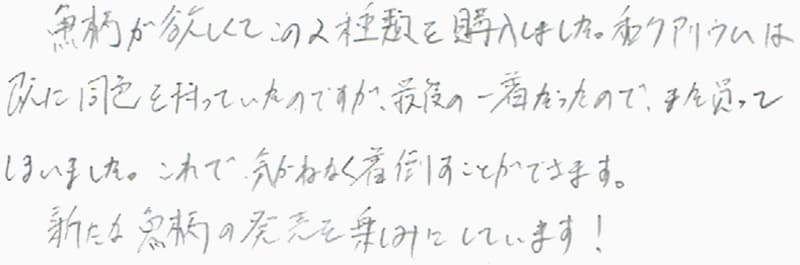 魚柄が欲しくてこの2種類を購入しました。和クアリウムは
既に同色を持っていたのですが、最後の一着だったので、また買って
しまいました。これで、気がねなく着倒すことができます。
新たな魚柄の発売を楽しみにしています！